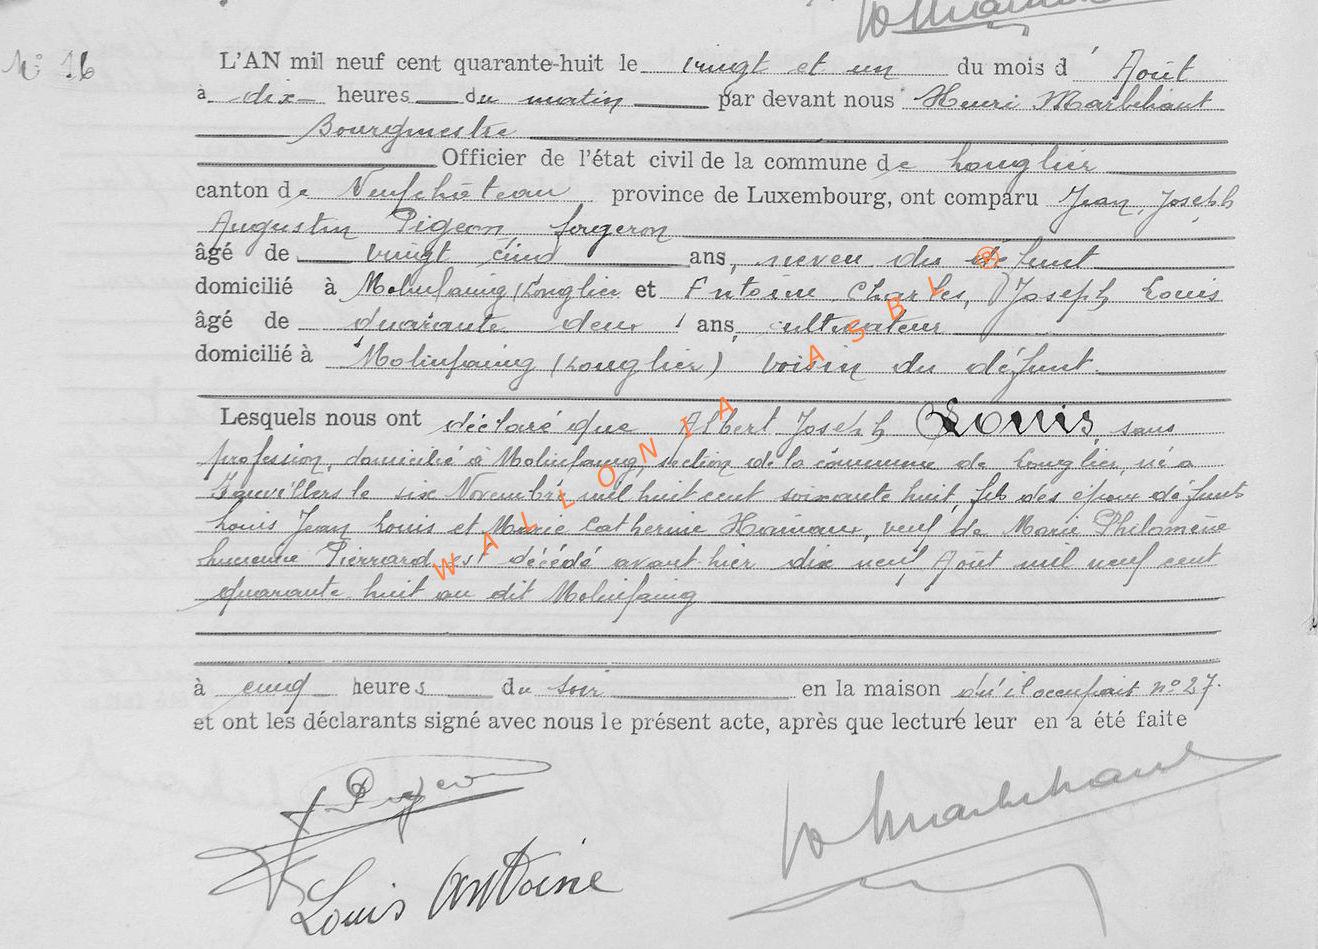 N° 16
L'AN mil neuf cent quarante-huit le vingt et un du mois d' Août
à dix heures du matin par devant nous Henri Marbehant
Bourgmestre
Officier de l'état civil de la commune de Longlier
canton de Neufchâteau province de Luxembourg, ont comparu Jean, Joseph
Augustin Pigeon forgeron
âgé de vingt cinq ans, neveu du défunt
domicilié à Molinfaing (Longlier et Antoine, Charles, Joseph Louis
âgé de quarante deux ans, cultivateur
domicilié à Molinfaing (Longlier) voisin du défunt.
Lesquels nous ont déclaré que Albert Joseph Louis, sans
profession, domicilié à Molinfaing, section de la commune de Longlier, né à
le six Novembre mil huit cent soixante huit, fils des époux défunts
Louis Jean Louis et Marie Catherine Hainaux, veuf de Marie Philomène
Pierrard, est décédé avant hier dix neuf Août mil neuf cent
quarante huit au dit Molinfaing
à cinq heures du soir en la maison qu'il occupait n° 27.
et ont les déclarants signé avec nous le présent acte, après que lecture leur en a été faite
Louis Antoine
WALLONIA ASBL ®